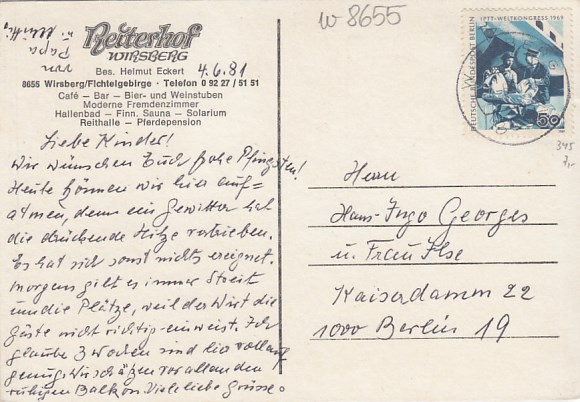 w 8655
Reiterhof
WIRSBERG
Bes. Helmut Eckert
4.6.81
8655 Wirsberg/Fichtelgebirge · Telefon 0 92 27 / 51 51
Café – Bar – Bier- und Weinstuben
Moderne Fremdenzimmer
Hallenbad – Finn. Sauna – Solarium
Reithalle – Pferdepension
Liebe Kinder!
Wir wünschen Euch frohe Pfingsten!
Heute können wir hier auf=
atmen, denn ein Gewitter hat
die drückende Hitze vertrieben.
Es hat sich sonst nichts ereignet.
Morgens gibt es immer Streit
um die Plätze, weil der Wirt die
Gäste nicht richtig einweist. Ich
glaube 3 Wochen sind hier vollauf
genug. Wir schätzen vor allem den
ruhigen Balkon. Viele liebe Grüsse
von
Papa
u.
IPTT-WELTKONGRESS 1969
DEUTSCHE BUNDESPOST BERLIN
50
345
Herrn
Hans-Ingo Georges
u. Frau Ilse
Kaiserdamm 22
1000 Berlin 19